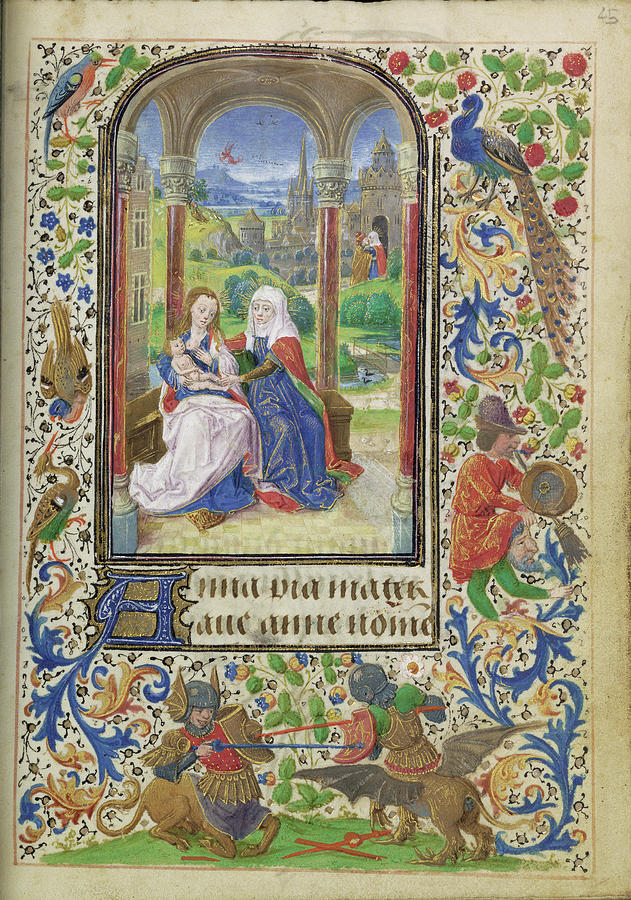 45
Anna pia mater
aue anne nomē